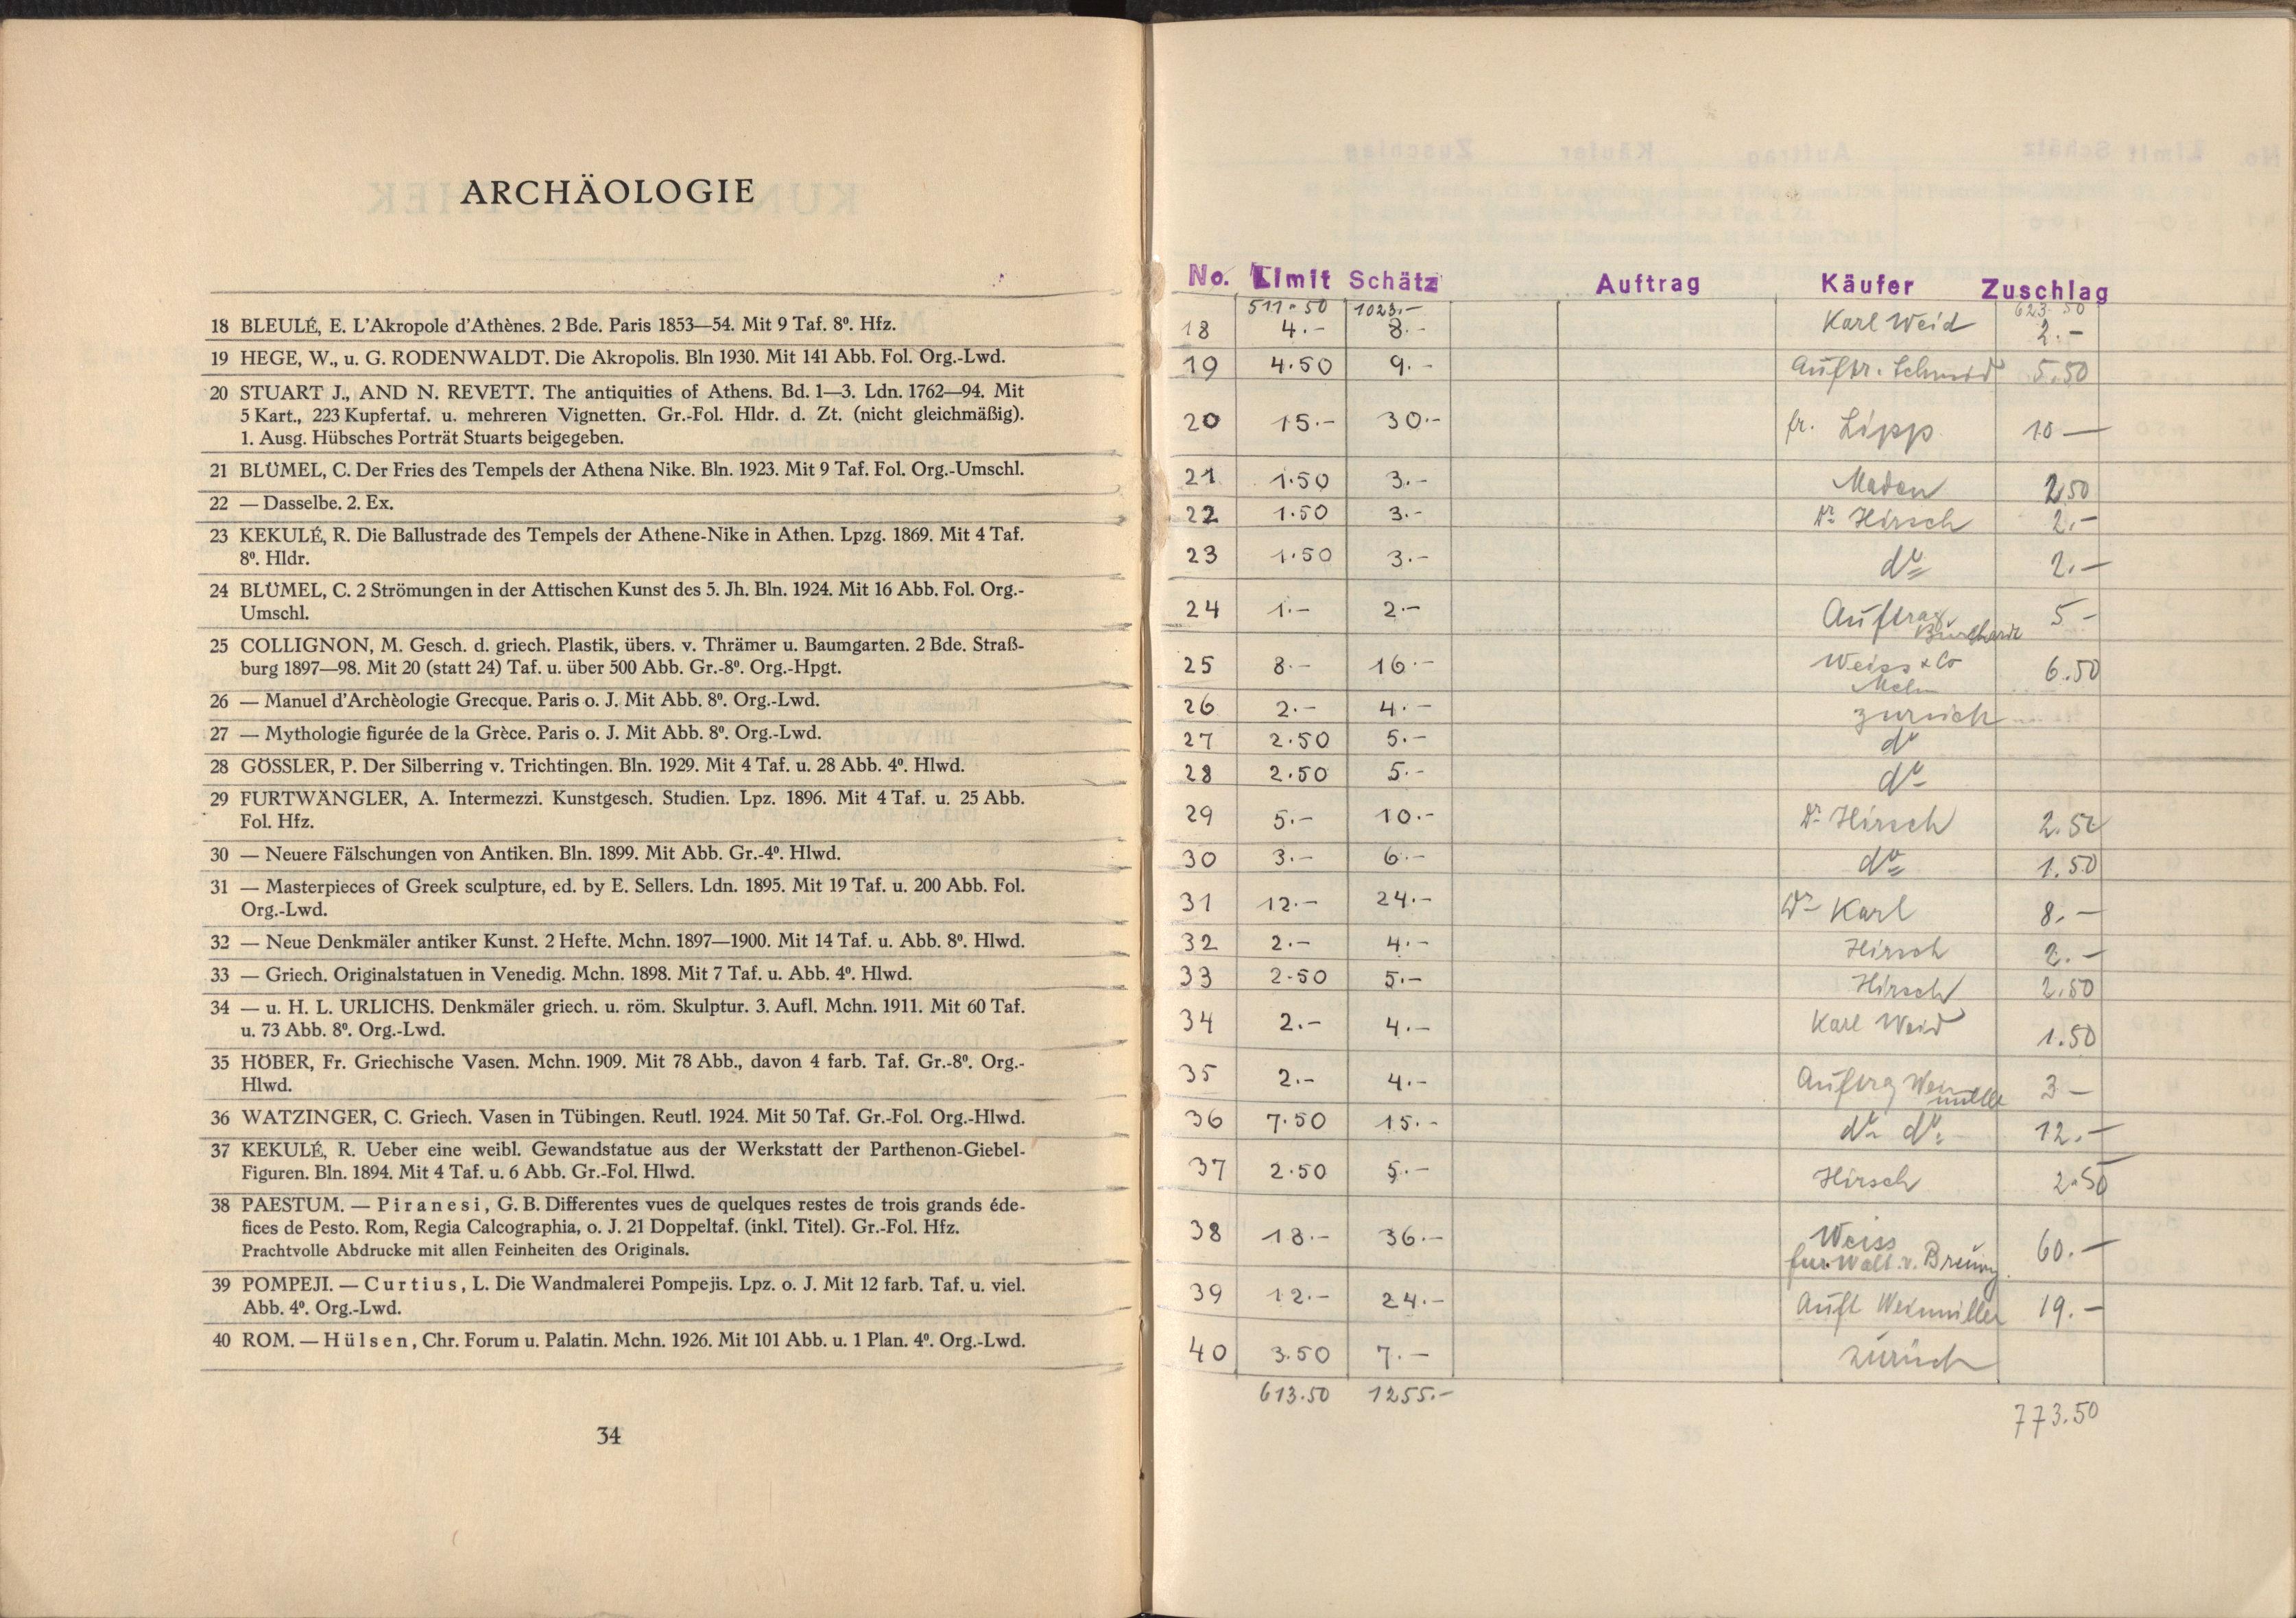 ARCHÄOLOGIE
18 BLEULÉ, E. L'Akropole d'Athènes. 2 Bde. Paris 1853—54. Mit 9 Taf. 8º. Hfz.
19 HEGE, W., u. G. RODENWALDT. Die Akropolis. Bln 1930. Mit 141 Abb. Fol. Org.-Lwd.
20 STUART J., AND N. REVETT. The antiquities of Athens. Bd. 1—3. Ldn. 1762—94. Mit
5 Kart., 223 Kupfertaf. u. mehreren Vignetten. Gr.-Fol. Hldr. d. Zt. (nicht gleichmäßig).
1. Ausg. Hübsches Porträt Stuarts beigegeben.
21 BLÜMEL, C. Der Fries des Tempels der Athena Nike. Bln. 1923. Mit 9 Taf. Fol. Org.-Umschl.
22 — Dasselbe. 2. Ex.
23 KEKULÉ, R. Die Ballustrade des Tempels der Athene-Nike in Athen. Lpzg. 1869. Mit 4 Taf.
8º. Hldr.
24 BLÜMEL, C. 2 Strömungen in der Attischen Kunst des 5. Jh. Bln. 1924. Mit 16 Abb. Fol. Org.-
Umschl.
25 COLLIGNON, M. Gesch. d. griech. Plastik, übers. v. Thrämer u. Baumgarten. 2 Bde. Straß-
burg 1897—98. Mit 20 (statt 24) Taf. u. über 500 Abb. Gr.-8º. Org.-Hpgt.
26 — Manuel d'Archèologie Grecque. Paris o. J. Mit Abb. 8º. Org.-Lwd.
27 — Mythologie figurée de la Grèce. Paris o. J. Mit Abb. 8º. Org.-Lwd.
28 GÖSSLER, P. Der Silberring v. Trichtingen. Bln. 1929. Mit 4 Taf. u. 28 Abb. 4º. Hlwd.
29 FURTWÄNGLER, A. Intermezzi. Kunstgesch. Studien. Lpz. 1896. Mit 4 Taf. u. 25 Abb.
Fol. Hfz.
30 — Neuere Fälschungen von Antiken. Bln. 1899. Mit Abb. Gr.-4º. Hlwd.
31 — Masterpieces of Greek sculpture, ed. by E. Sellers. Ldn. 1895. Mit 19 Taf. u. 200 Abb. Fol.
Org.-Lwd.
32 — Neue Denkmäler antiker Kunst. 2 Hefte. Mchn. 1897—1900. Mit 14 Taf. u. Abb. 8º. Hlwd.
33 — Griech. Originalstatuen in Venedig. Mchn. 1898. Mit 7 Taf. u. Abb. 4º. Hlwd.
34 — u. H. L. URLICHS. Denkmäler griech. u. röm. Skulptur. 3. Aufl. Mchn. 1911. Mit 60 Taf.
u. 73 Abb. 8º. Org.-Lwd.
35 HÖBER, Fr. Griechische Vasen. Mchn. 1909. Mit 78 Abb., davon 4 farb. Taf. Gr.-8º. Org.-
Hlwd.
36 WATZINGER, C. Griech. Vasen in Tübingen. Reutl. 1924. Mit 50 Taf. Gr.-Fol. Org.-Hlwd.
37 KEKULÉ, R. Ueber eine weibl. Gewandstatue aus der Werkstatt der Parthenon-Giebel-
Figuren. Bln. 1894. Mit 4 Taf. u. 6 Abb. Gr.-Fol. Hlwd.
38 PAESTUM. — Piranesi, G. B. Differentes vues de quelques restes de trois grands éde-
fices de Pesto. Rom, Regia Calcographia, o. J. 21 Doppeltaf. (inkl. Titel). Gr.-Fol. Hfz.
Prachtvolle Abdrucke mit allen Feinheiten des Originals.
39 POMPEJI. — Curtius, L. Die Wandmalerei Pompejis. Lpz. o. J. Mit 12 farb. Taf. u. viel.
Abb. 4º. Org.-Lwd.
40 ROM. — Hülsen, Chr. Forum u. Palatin. Mchn. 1926. Mit 101 Abb. u. 1 Plan. 4º. Org.-Lwd.
34
No. Limit Schätz Auftrag Käufer Zuschlag
511.50 1023.- 623.50
18 4.- 8.- Karl Weid 2.-
19 4.50 9.- Auftr. Schmid 5.50
20 15.- 30.- fr. Lipp 10 —
21 1.50 3.- 2.50
22 1.50 3.- Dr Hirsch 2.-
23 1.50 3.- do 2.-
24 1.- 2.- Auftrag 5 -
25 8.- 16.- Weiss & Co 6.50
26 2.- 4.- zurück
27 2.50 5.- do
28 2.50 5.- do
29 5.- 10.- Dr Hirsch 2.50
30 3.- 6.- do 1.50
31 12.- 24.- Dr Karl 8.-
32 2.- 4.- Hirsch 2.-
33 2.50 5.- Hirsch 2.50
34 2.- 4.- Karl Weid 1.50
35 2.- 4.- Auftrg Weinmüller 3 -
36 7.50 15.- do do 12.-
37 2.50 5.- Hirsch 2.50
38 18.- 36.- Weiss 60.-
für Walt. v.
39 12.- 24.- Auft Weinmüller 19.-
40 3.50 7.- zurück
613.50 1255.-
773.50